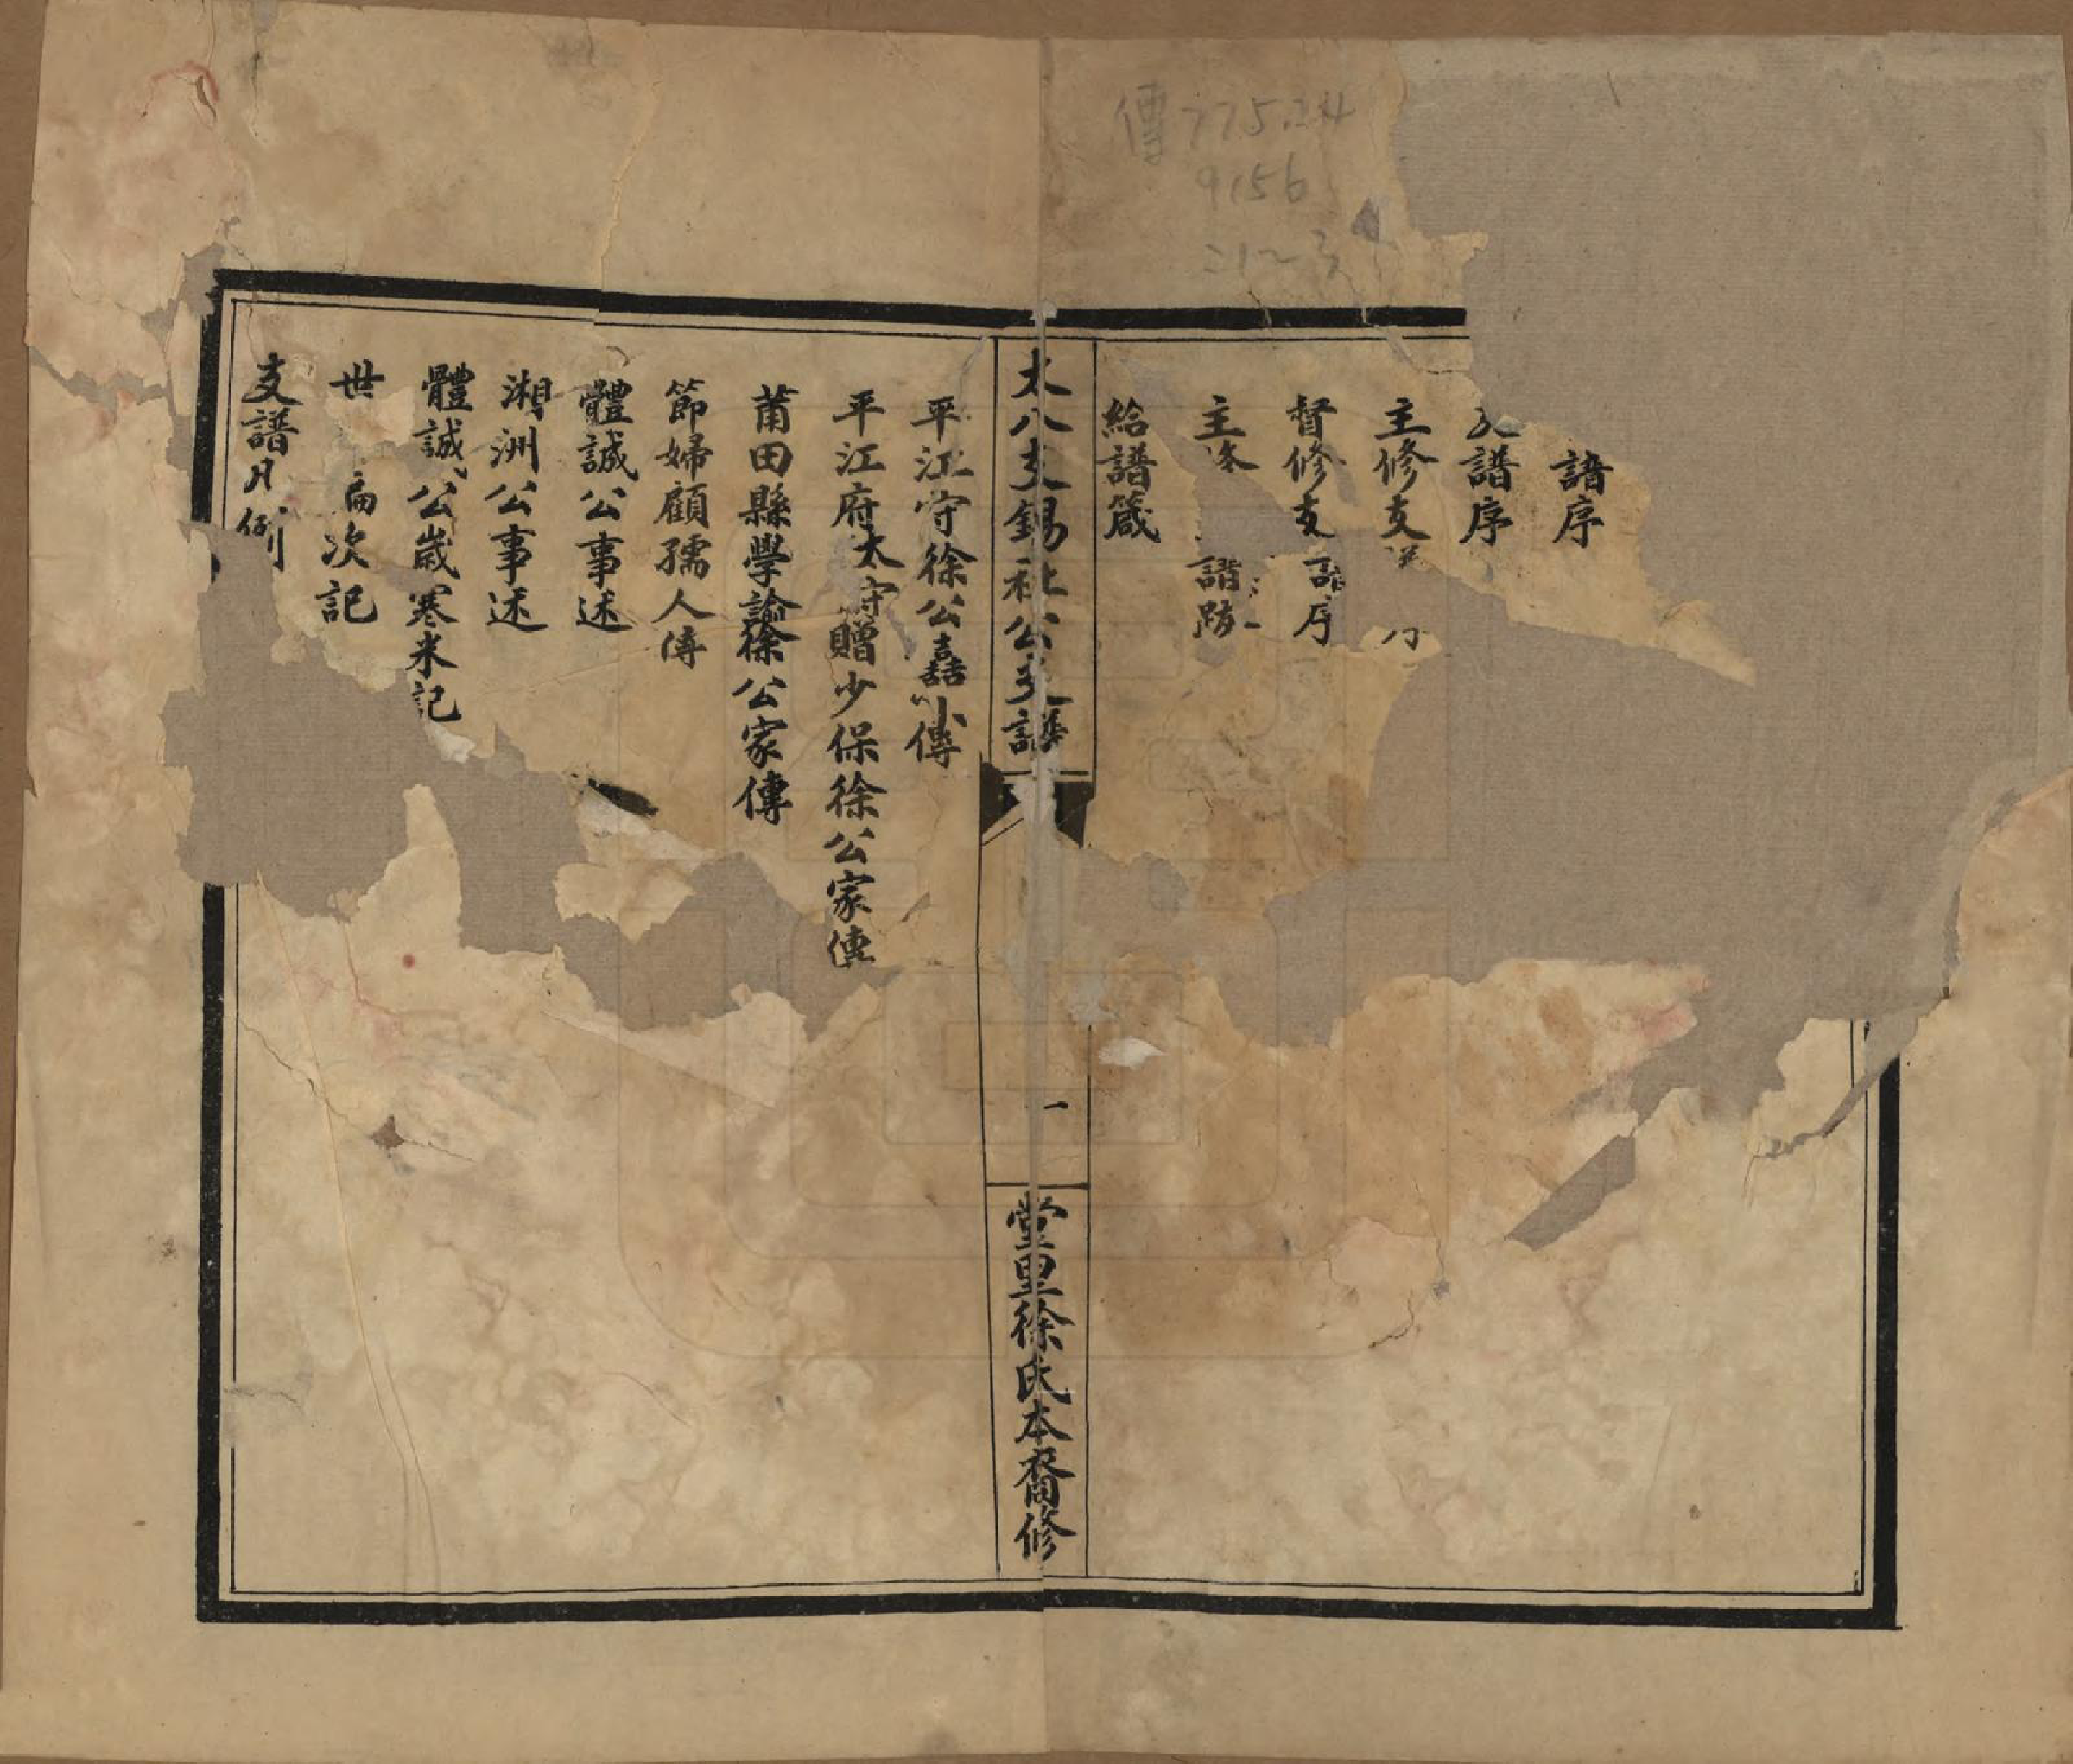 傳 775.24
9156
譜序
支譜序
主修支
督修支譜序
主修 譜跋
給譜箴
太八支錫社公支譜
一
堂里徐氏本裔修
平江守徐公嚞小傳
平江府太守贈少保徐公家傳
莆田縣學諭徐公家傳
節婦顧孺人傳
體誠公事述
湘洲公事述
體誠公歲寒来記
世 扁次記
支譜凡例